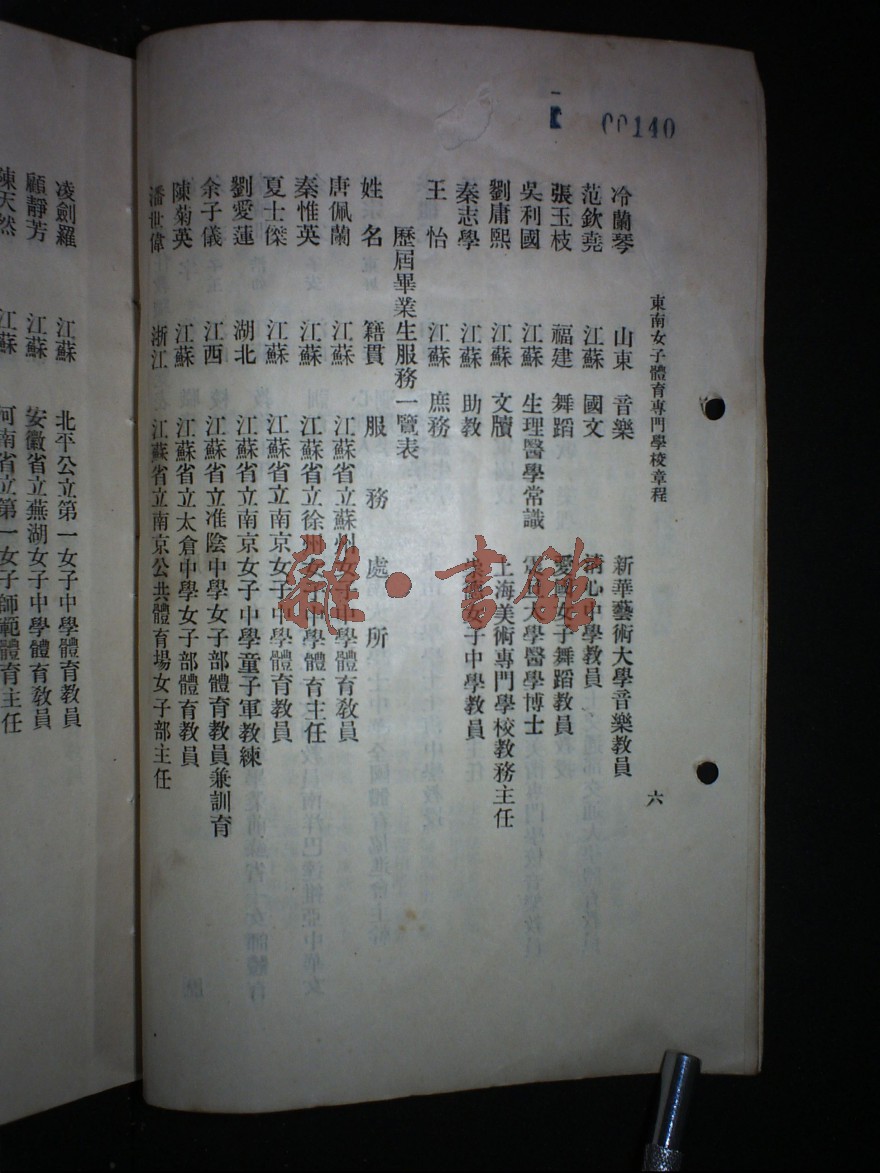 00140
東南女子體育專門學校章程 六
冷蘭琴 山東 音樂 新華藝術大學音樂教員
范欽堯 江蘇 國文 清心中學教員
張玉枝 福建 舞蹈 愛國女子舞蹈教員
吳利國 江蘇 生理醫學常識 震旦大學醫學博士
劉庸熙 江蘇 文牘 上海美術專門學校教務主任
秦志學 江蘇 助教 女子中學教員
王怡 江蘇 庶務
歷屆畢業生服務一覽表
姓名 籍貫 服務處所
唐佩蘭 江蘇 江蘇省立蘇州女子中學體育教員
秦惟英 江蘇 江蘇省立徐州女子中學體育主任
夏士傑 江蘇 江蘇省立南京女子中學體育教員
劉愛蓮 湖北 江蘇省立南京女子中學童子軍教練
余子儀 江西 江蘇省立淮陰中學女子部體育教員兼訓育
陳菊英 江蘇 江蘇省立太倉中學女子部體育教員
潘世偉 浙江 江蘇省立南京公共體育場女子部主任
凌劍羅 江蘇 北平公立第一女子中學體育教員
顧靜芳 江蘇 安徽省立蕪湖女子中學體育教員
陳天然 江蘇 河南省立第一女子師範體育主任
雜·書館